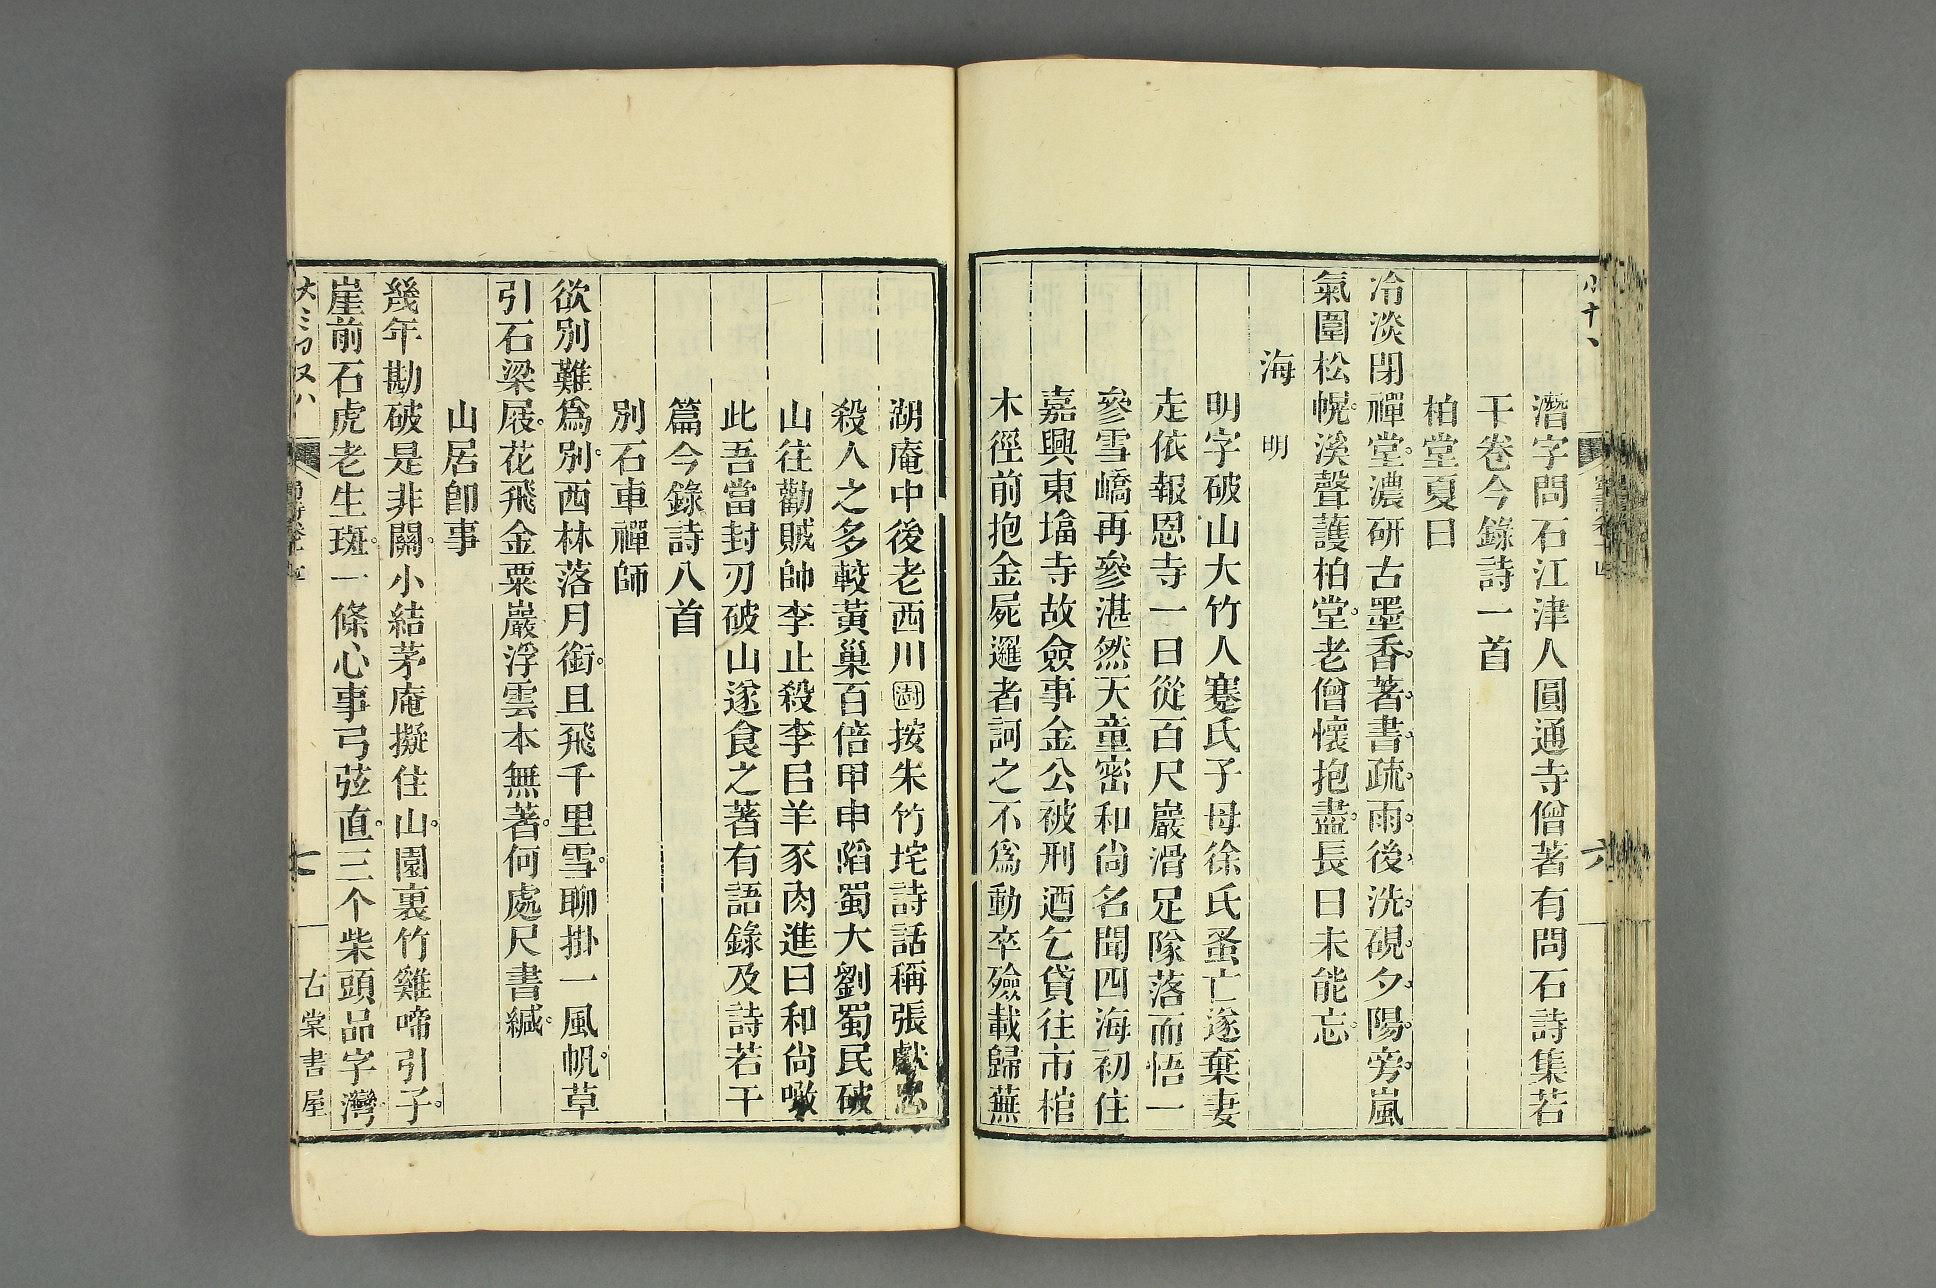 澘字問石江津人圓通寺僧著有問石詩集若
干卷今錄詩一首
柏堂夏日
冷淡閉禪堂濃研古墨香著書疏雨後洗硯夕陽旁嵐
氣圍松幌溪聲護柏堂老僧懷抱盡長日未能忘
海明
明字破山大竹人蹇氏子母徐氏蚤亡遂棄妻
走依報恩寺一日從百尺巖滑足隊落而悟一
參雪嶠再參湛然天童密和尚名聞四海初住
嘉興東墖寺故僉事金公被刑迺乞貸往市棺
木徑前抱金屍邏者訶之不爲動卒殮載歸蕪
湖庵中後老西川澍按朱竹垞詩話稱張獻忠
殺人之多較黃巢百倍甲申陷蜀大劉蜀民破
山往勸賊帥李止殺李㠯羊豕肉進曰和尚噉
此吾當封刃破山遂食之著有語錄及詩若干
篇今錄詩八首
別石車禪師
欲別難爲別西林落月銜且飛千里雪聊掛一風帆草
引石梁屐花飛金粟巖浮雲本無著何處尺書緘
山居卽事
幾年勘破是非關小結茅庵擬住山園裏竹雞啼引子
崖前石虎老生斑一條心事弓弦直三个柴頭品字灣
七
古棠書屋